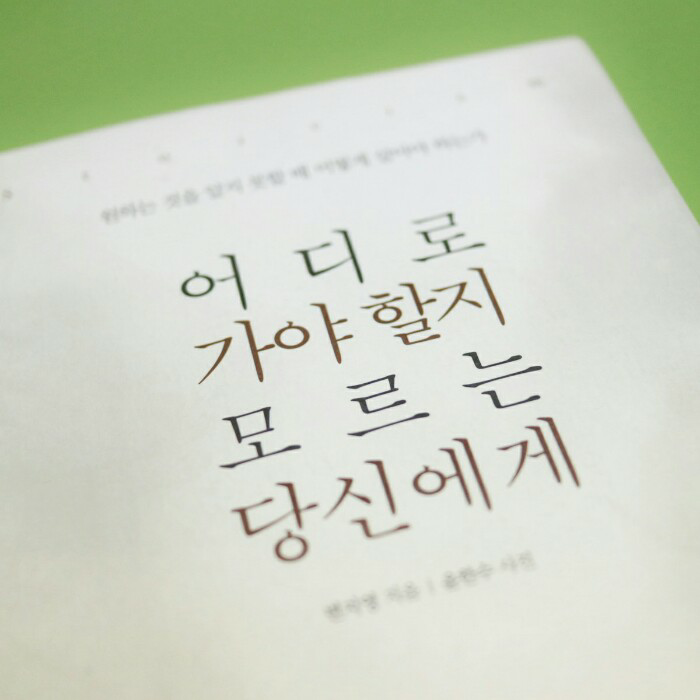 원하는 것을 알지 못할 때 어떻게 살아야 하는가
어디로
가야 할지
모르는
당신에게
변지영 지음 | 윤한수 사진